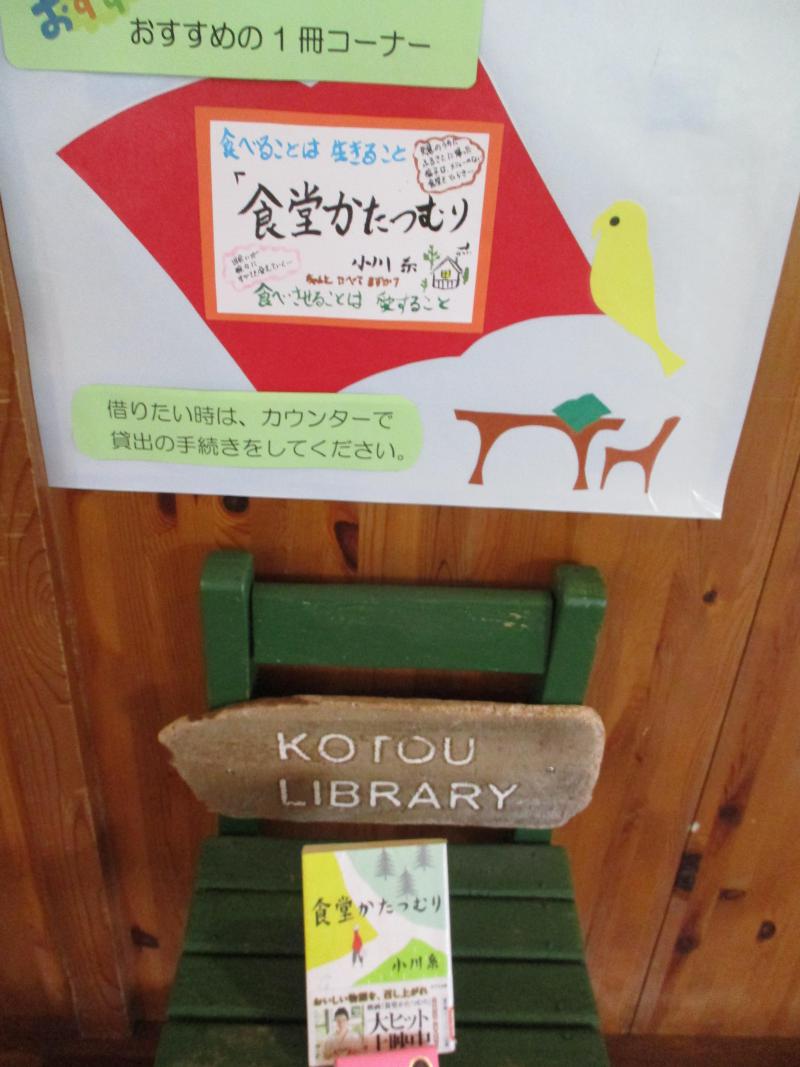 おすす
おすすめの1冊コーナー
食べることは 生きること
「食堂かたつむり
小川 糸
食べさせることは 愛すること
借りたい時は、カウンターで
貸出の手続きをしてください。
KOTOU
LIBRARY
食堂かたつむり
小川糸
おいしい物語を、召し上がれ
大ヒット
上映中